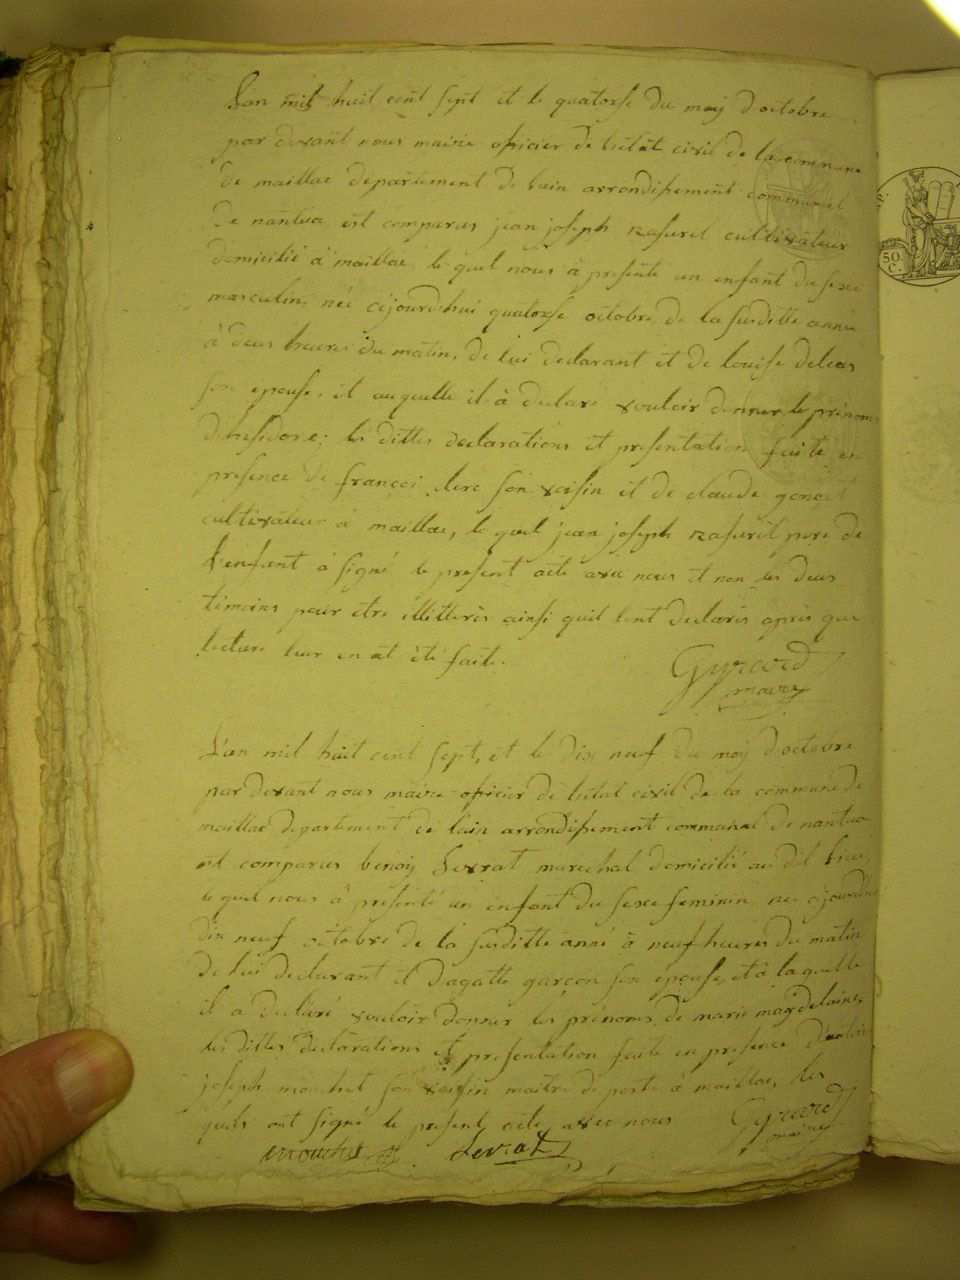 L'an mil huit cent sept et le quatorse du moy d'octobre
par devant nous maire oficier de l'etat civil de la commune
de maillac departement de l'ain arrondissement communal
de nantua est comparus jean joseph Rasurel cultivateur
domicilié à maillac, le quel nous à presenté un enfant du sexe
masculin, née cejourdhui quatorse octobre de la susditte année
à deus heures du matin, de lui declarant et de louise deleas
son epouse, et auquelle il à declaré vouloir donner le prénom
les dittes declarations et presentation faite en
presence de françoi clerc son voisin et de claude
cultivateur à maillac, le quel jean joseph Rasurel pere de
l'enfant à signé le present acte avec nous et non les deus
témoins pour etre illitterés ainsi quil l'ont declarés après que
lecture leur en at été faite.
Gyrord
maire
L'an mil huit cent sept, et le dix neuf du moy d'octobre
par devant nous maire oficier de l'etat civil de la commune de
maillac departement de l'ain arrondissement communal de nantua
est comparus benoy Levrat marechal domicilié au dit lieu,
le quel nous à présenté un enfant du sexe feminin née cejourdhui
dix neuf octobre de la susditte année à neuf heures du matin
de lui declarant et d'agatte garçon son epouse, et à laquelle
il a declaré vouloir donner les prénoms de marie magdelaine,
les dittes declarations et presentation faite en presence
joseph mouchet son voisin maitre de poste à maillac, les
quels ont signé le present acte avec nous Gyrord
maire
mouchet Levrat
50
C.